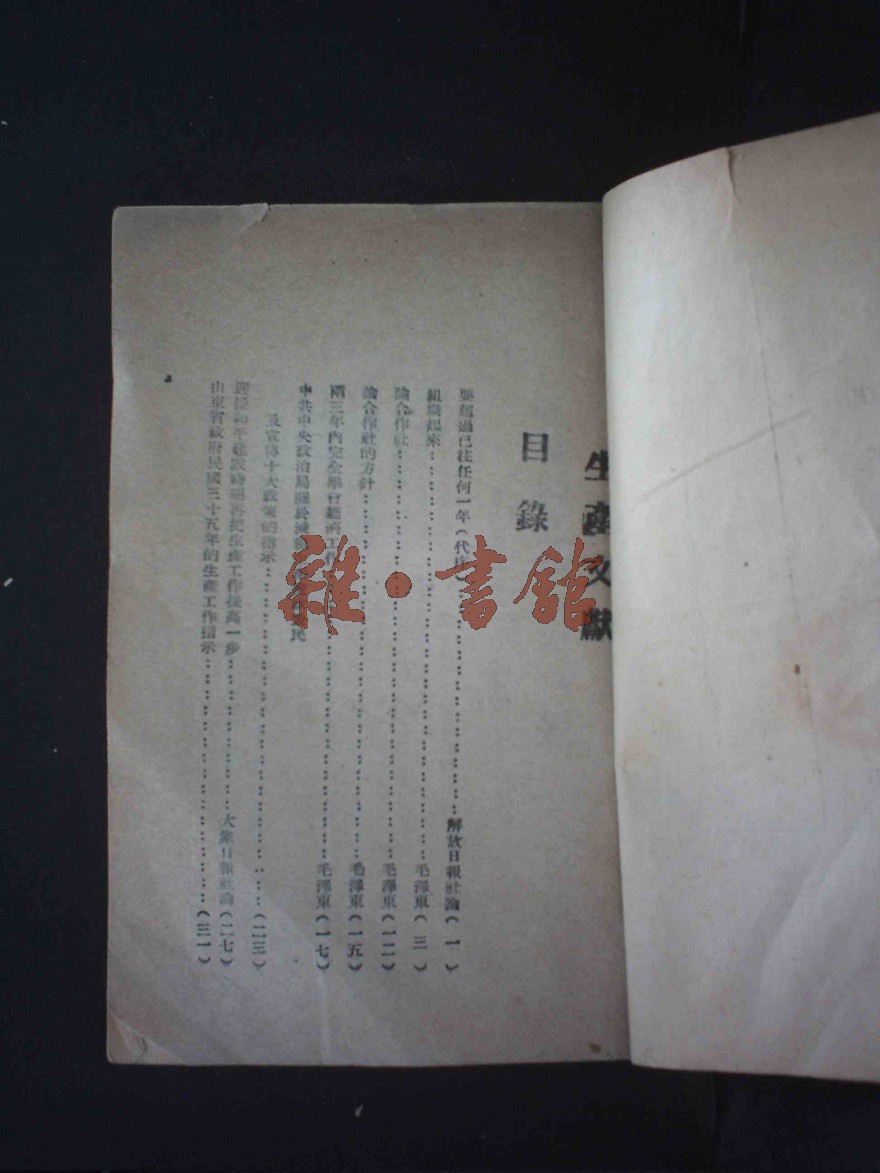 生產文獻
目錄
要超過已往任何一年(代序)……解放日報社論(一)
組織起來……毛澤東(三)
論合作社……毛澤東(一二)
論合作社的方針……毛澤東(一五)
兩三年內完全學會經濟工作……毛澤東(一七)
中共中央政治局關於減租 民
及宣傳十大政策的指示……(二三)
迎接和平建設時期再把生產工作提高一步……大衆日報社論(二七)
山東省政府民國三十五年的生產工作指示……(三一)
雜·書館